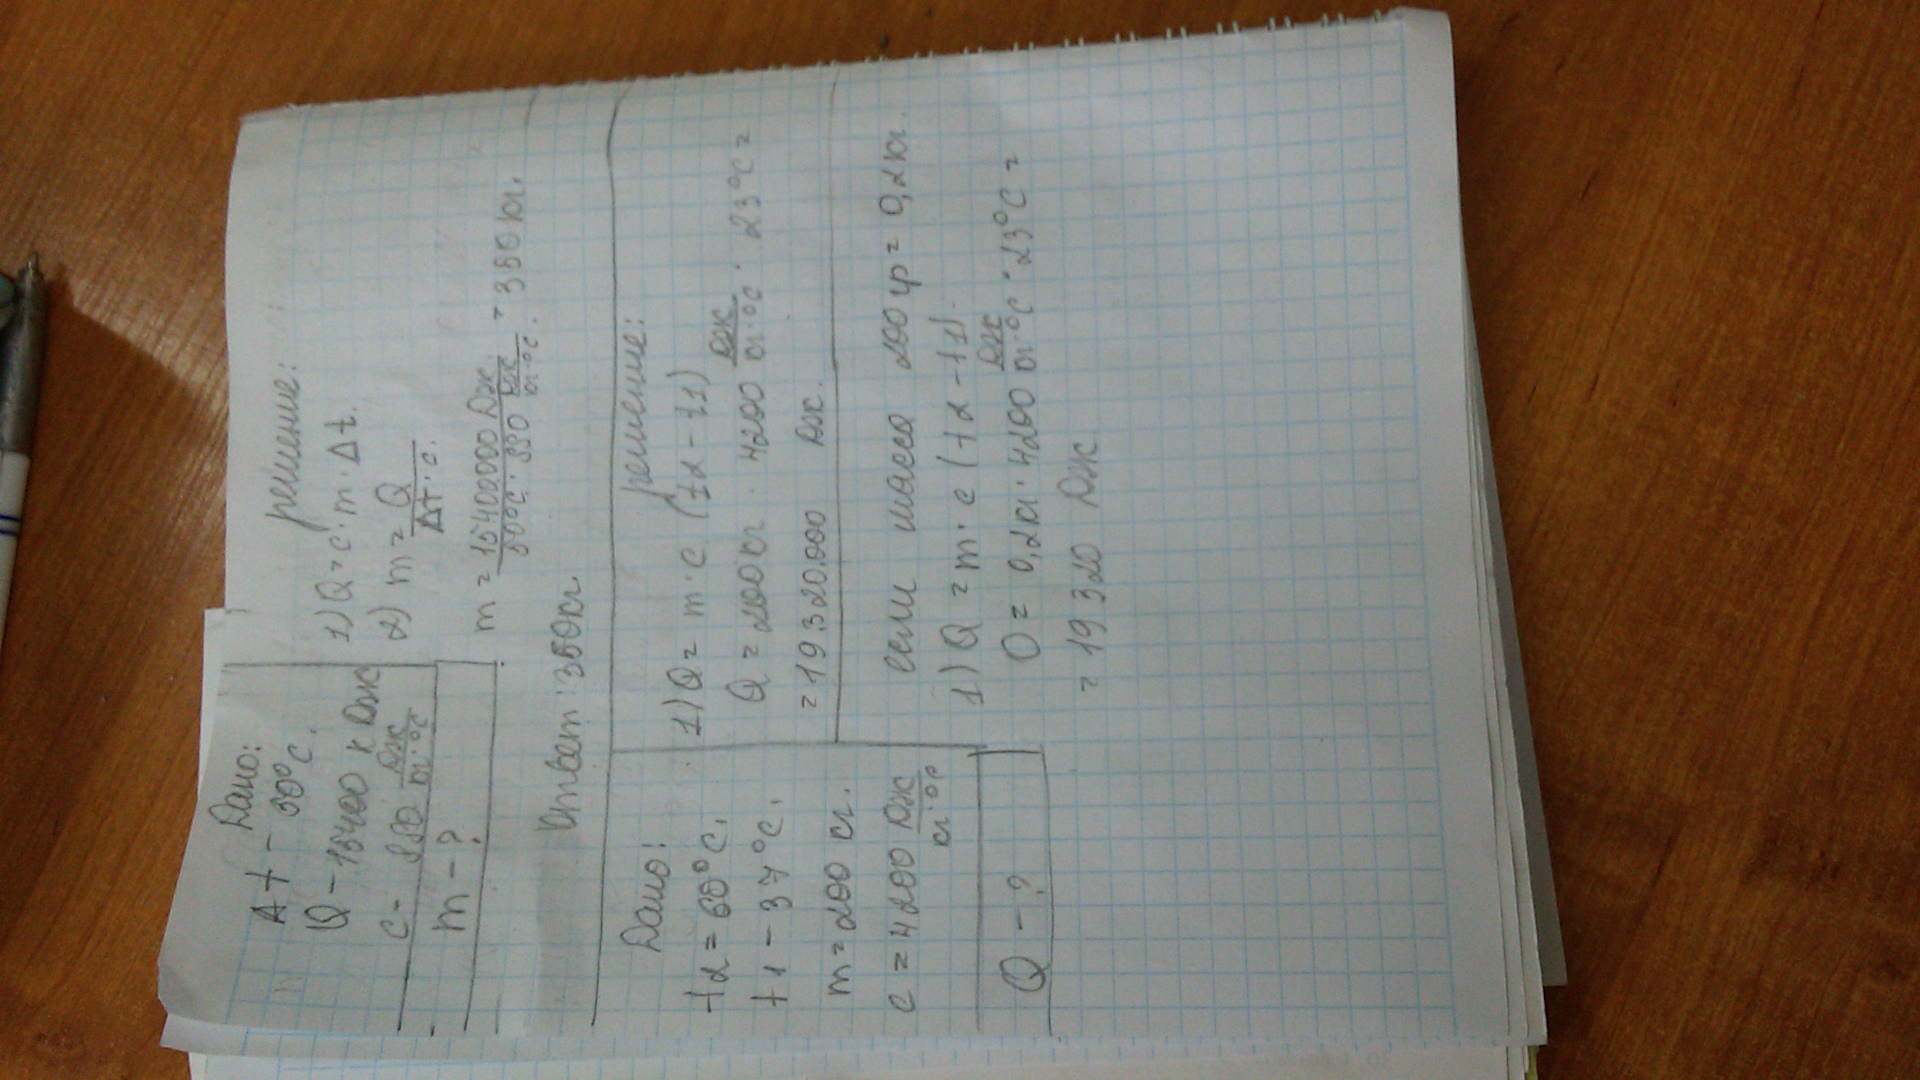 Дано:
Δt - 50°C.
Q - 15400 к Дж
c - 880 Дж/кг·°C
m - ?
решение:
1) Q = c · m · Δt.
2) m = Q/Δt · c.
m = 15400000 Дж/50°C · 880 Дж/кг·°C. = 350 кг.
Ответ: 350кг
Дано:
t2 = 60°C.
t1 - 37°C.
m = 200 кг.
c = 4200 Дж/кг·°C
Q - ?
решение:
1) Q = m · c (t2 - t1)
Q = 200 кг · 4200 Дж/кг·°C · 23°C =
= 19.320.000 Дж.
если масса 200 гр = 0,2кг.
1) Q = m · c (t2 - t1).
Q = 0,2кг · 4200 Дж/кг·°C · 23°C =
= 19 320 Дж